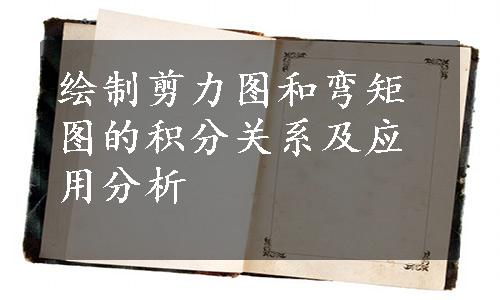 绘制剪力图和弯矩
图的积分关系及应
用分析